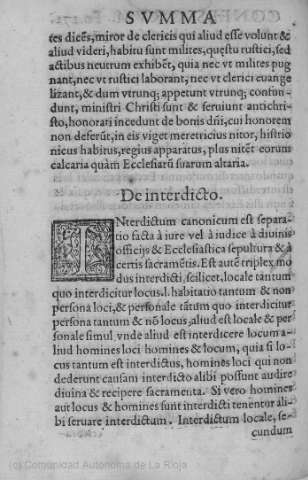 SVMMA
tes dicẽs, miror de clericis qui aliud esse volunt &
aliud videri, habitu sunt milites, quęstu rustici, sed
actibus neutrum exhibẽt, quia nec vt milites pug
nant, nec vt rustici laborant, nec vt clerici euange
lizant, & dum vtrunq; appetunt vtrunq; confun-
dunt, ministri Christi sunt & seruiunt antichri-
sto, honorati incedunt de bonis dñi, cui honorem
non deferũt, in eis viget meretricius nitor, histrio
nicus habitus, regius apparatus, plus nitẽt eorum
calcaria quàm Ecclesiarũ suarum altaria.
De interdicto.
INterdictum canonicum est separa-
tio facta à iure vel à iudice à diuinis
officijs & Ecclesiastica sepultura & à
certis sacramẽtis. Est autẽ triplex mo
dus interdicti, scilicet, locale tantum
quo interdicitur locus. l. habitatio tantum & non
persona loci, & personale tãtũm quo interdicitur
persona tantum & nõ locus, aliud est locale & per
sonale simul, vnde aliud est interdicere locum a-
liud homines loci homines & locum, quia si lo-
cus tantum est interdictus, homines loci qui non
dederunt causam interdicto alibi possunt audire
diuina & recipere sacramenta. Si vero homines
aut locus & homines sunt interdicti tenentur ali-
bi seruare interdictum. Interdictum locale, se-
cundum
(c) Comunidad Autónoma de La Rioja